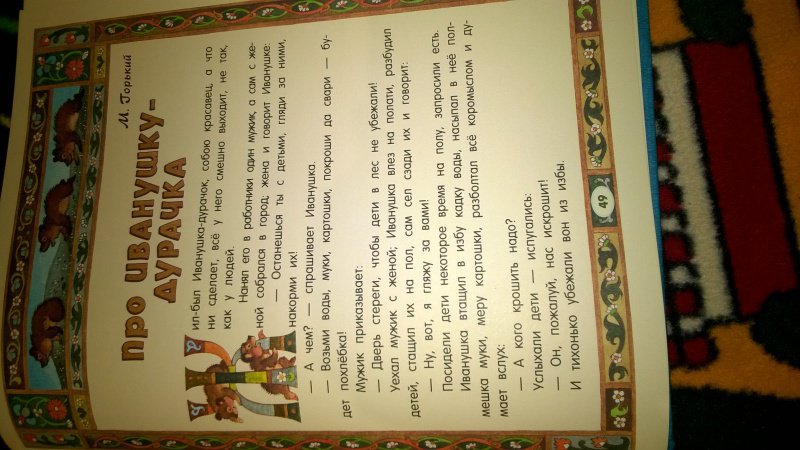 М. Горький
ПРО ИВАНУШКУ-
ДУРАЧКА
Жил-был Иванушка-дурачок, собою красавец, а что
ни сделает, всё у него смешно выходит, не так,
как у людей.
Нанял его в работники один мужик, а сам с же-
ной собрался в город; жена и говорит Иванушке:
— Останешься ты с детьми, гляди за ними,
накорми их!
— А чем? — спрашивает Иванушка.
— Возьми воды, муки, картошки, покроши да свари — бу-
дет похлёбка!
Мужик приказывает:
— Дверь стереги, чтобы дети в лес не убежали!
Уехал мужик с женой; Иванушка влез на полати, разбудил
детей, стащил их на пол, сам сел сзади их и говорит:
— Ну, вот, я гляжу за вами!
Посидели дети некоторое время на полу, запросили есть.
Иванушка втащил в избу кадку воды, насыпал в неё пол-
мешка муки, меру картошки, разболтал всё коромыслом и ду-
мает вслух:
— А кого крошить надо?
Услыхали дети — испугались:
— Он, пожалуй, нас искрошит!
И тихонько убежали вон из избы.
49